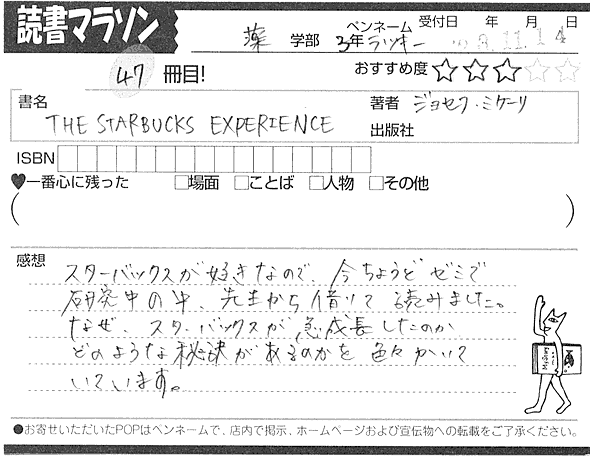 読書マラソン
薬 学部 3年 ペンネーム ラッキー 受付日 年 月 日
08.11.14
47 冊目! おすすめ度 ☆☆☆☆☆
書名 THE STARBUCKS EXPERIENCE
著者 ジョセフ・ミケーリ
出版社
ISBN
♥一番心に残った □場面 □ことば □人物 □その他
( )
感想
スターバックスが好きなので、今ちょうどゼミで
研究中の中、先生から借りて読みました。
なぜ、スターバックスが急成長したのか
どのような秘訣があるのかを色々かいて
いています。
●お寄せいただいたPOPはペンネームで、店内で掲示、ホームページおよび宣伝物への転載をご了承ください。